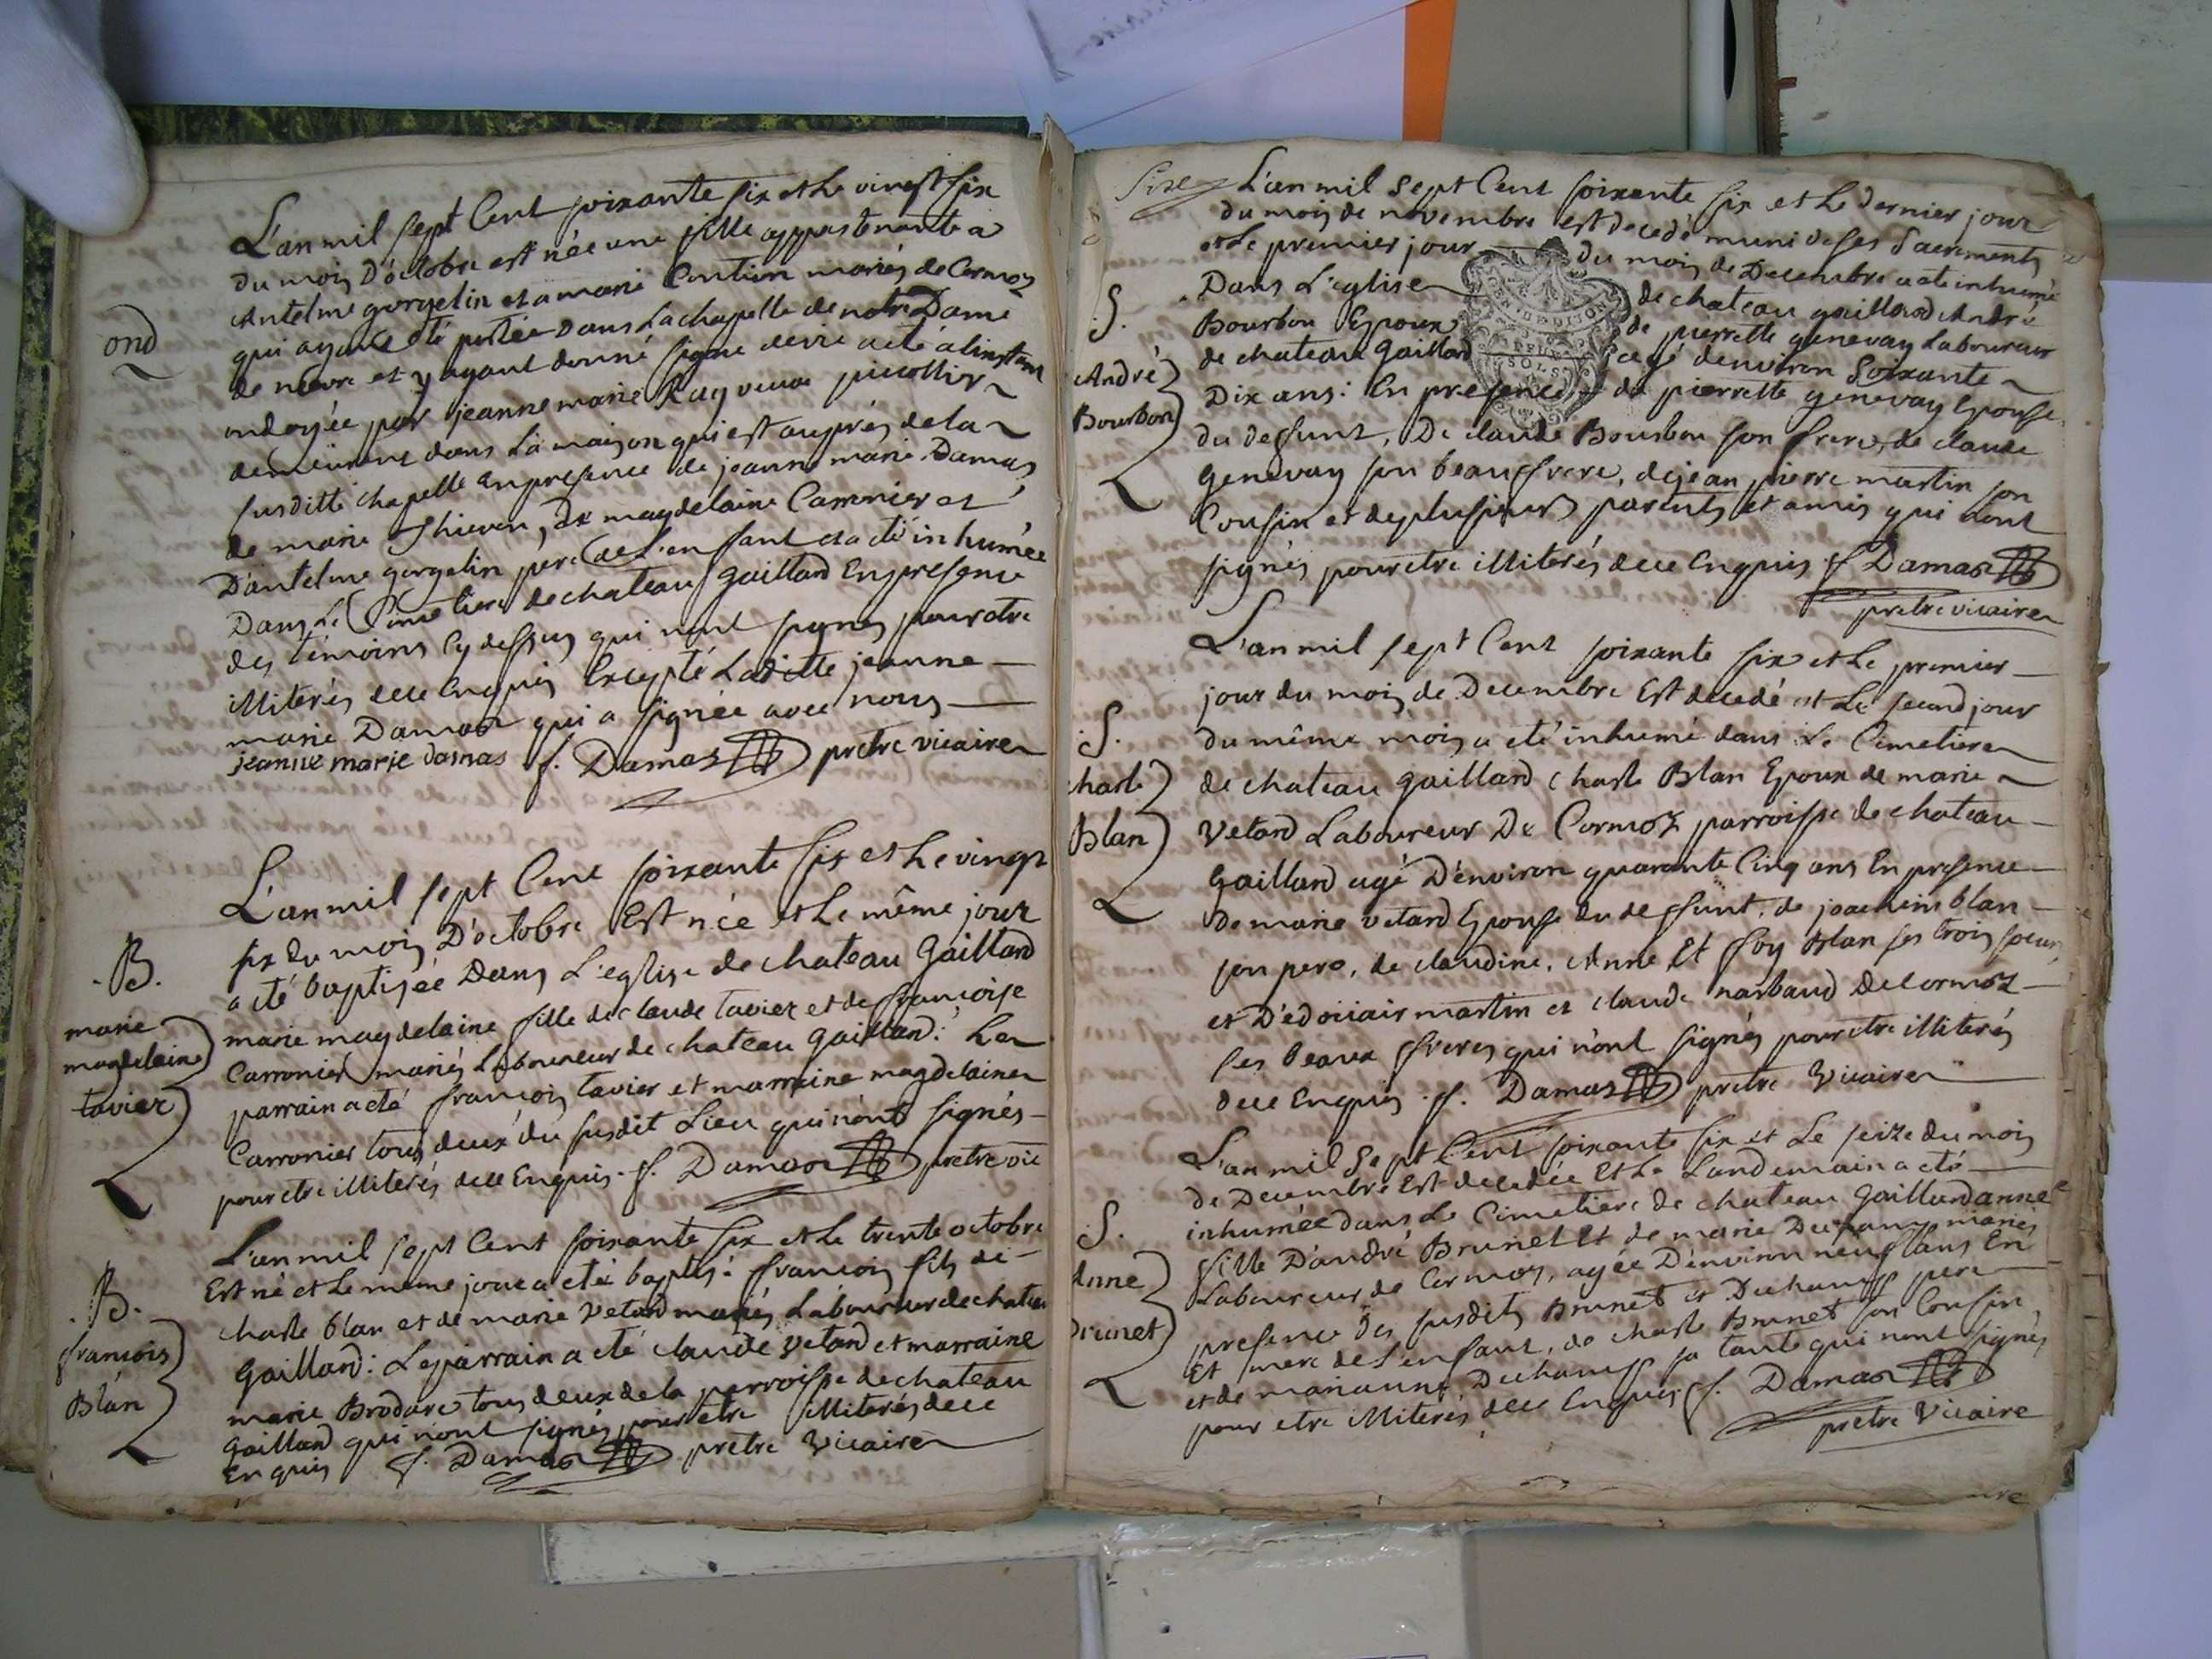 ond
L'an mil sept Cent soixante six et Le vingt six
du mois D'octobre est née une fille appartenante a
Antelme gorgelin et a marie Contion mariés de Cormoz
qui ayant été portée Dans La chapelle de notre Dame
de nievre et y ayant donné signe de vie a eté a linstant
ondoyée par jeanne marie Ray veuve
demeurant dans La maison qui est auprès de la
susditte chapelle En presence de jeanne marie Damas
de marie Thievon, de magdelaine Carronier et
D'antelme gorgelin père de L'enfant et a eté inhumée
Dans Le Cimetiere de chateau Gaillard En presence
des témoins Cy dessus qui n'ont signés pour etre
illiterés de ce Enquis Excepté Laditte jeanne
marie Damas qui a signée avec nous
jeanne marie damas f. Damas pretre vicaire
B.
marie
magdelaine
tavier
L'an mil sept Cent soixante six et Le vingt
six du mois D'octobre Est née et Le même jour
a eté baptisée Dans L'eglise de chateau Gaillard
marie magdelaine fille de claude tavier et de francoise
Carronier mariés Laboureur de chateau Gaillard: Le
parrain a eté francois tavier et marraine magdelaine
Carronier tous deux du susdit Lieu qui n'ont signés
pour etre illiterés de ce Enquis. f. Damas pretre vic
B.
francois
Blan
L'an mil sept Cent soixante six et Le trente octobre
Est né et Le meme jour a eté baptisé francois fils de
charle blan et de marie Vetard mariés Laboureur de chateau
Gaillard: Le parrain a eté claude Vetard et marraine
marie Brodure tous deux de la parroisse de chateau
Gaillard qui n'ont signés pour etre illiterés de ce
Enquis f. Damas pretre Vicaire
Sixe
S.
André
Bourbon
L'an mil sept Cent soixante six et Le dernier jour
du mois de novembre est decedé muni de ses Sacrements
et Le premier jour du mois de Decembre a eté inhumé
Dans L'eglise de chateau gaillard André
Bourbon Epoux de pierrette genevay Laboureur
de chateau Gaillard agé denviron Soixante
Dix ans: En presence de pierrette genevay Epouse
du deffunt, De claude Bourbon son frere, de claude
Genevay son beaufrere, de jean pierre martin son
Cousin et de plusieurs parents et amis qui n'ont
signés pour etre illiterés de ce Enquis f Damas
pretre vicaire
S.
charle
Blan
L'an mil sept Cent soixante six et Le premier
jour du mois de Decembre Est decedé et Le second jour
du même mois a eté inhumé dans Le Cimetiere
de chateau gaillard charle Blan Epoux de marie
Vetard Laboureur De Cormoz parroisse de chateau
Gaillard agé D'environ quarante Cinq ans En presence
de marie vetard Epouse du deffunt, de joachim blan
son pere, de claudine, Anne Et foy Blan ses trois soeurs
et D'edouair martin et claude narbaud de Cormoz
ses beaux freres qui n'ont signés pour etre illiterés
de ce Enquis. f. Damas pretre Vicaire
S.
Anne
Brunet
L'an mil Sept Cent soixante six et Le seize du mois
de Decembre Est decedée Et Le Landemain a eté
inhumée dans Le Cimetiere de chateau Gaillard anne
fille D'andré Brunet Et de marie Duchamp mariés
Laboureur de Cormoz, agée D'environ neuf ans En
presence des susdits Brunet et Duchamp pere
Et mere de L'enfant, de charle Brunet son Cousin,
et de marianne Duchamp sa tante qui n'ont signés
pour etre illiterés de ce Enquis f. Damas
pretre Vicaire